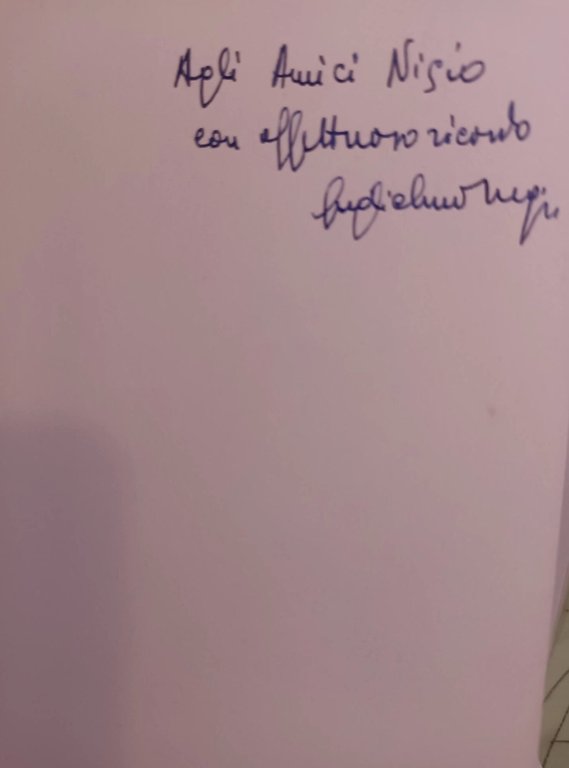 Agli Amici Nisio
con affettuoso ricordo
Guglielmo Negri